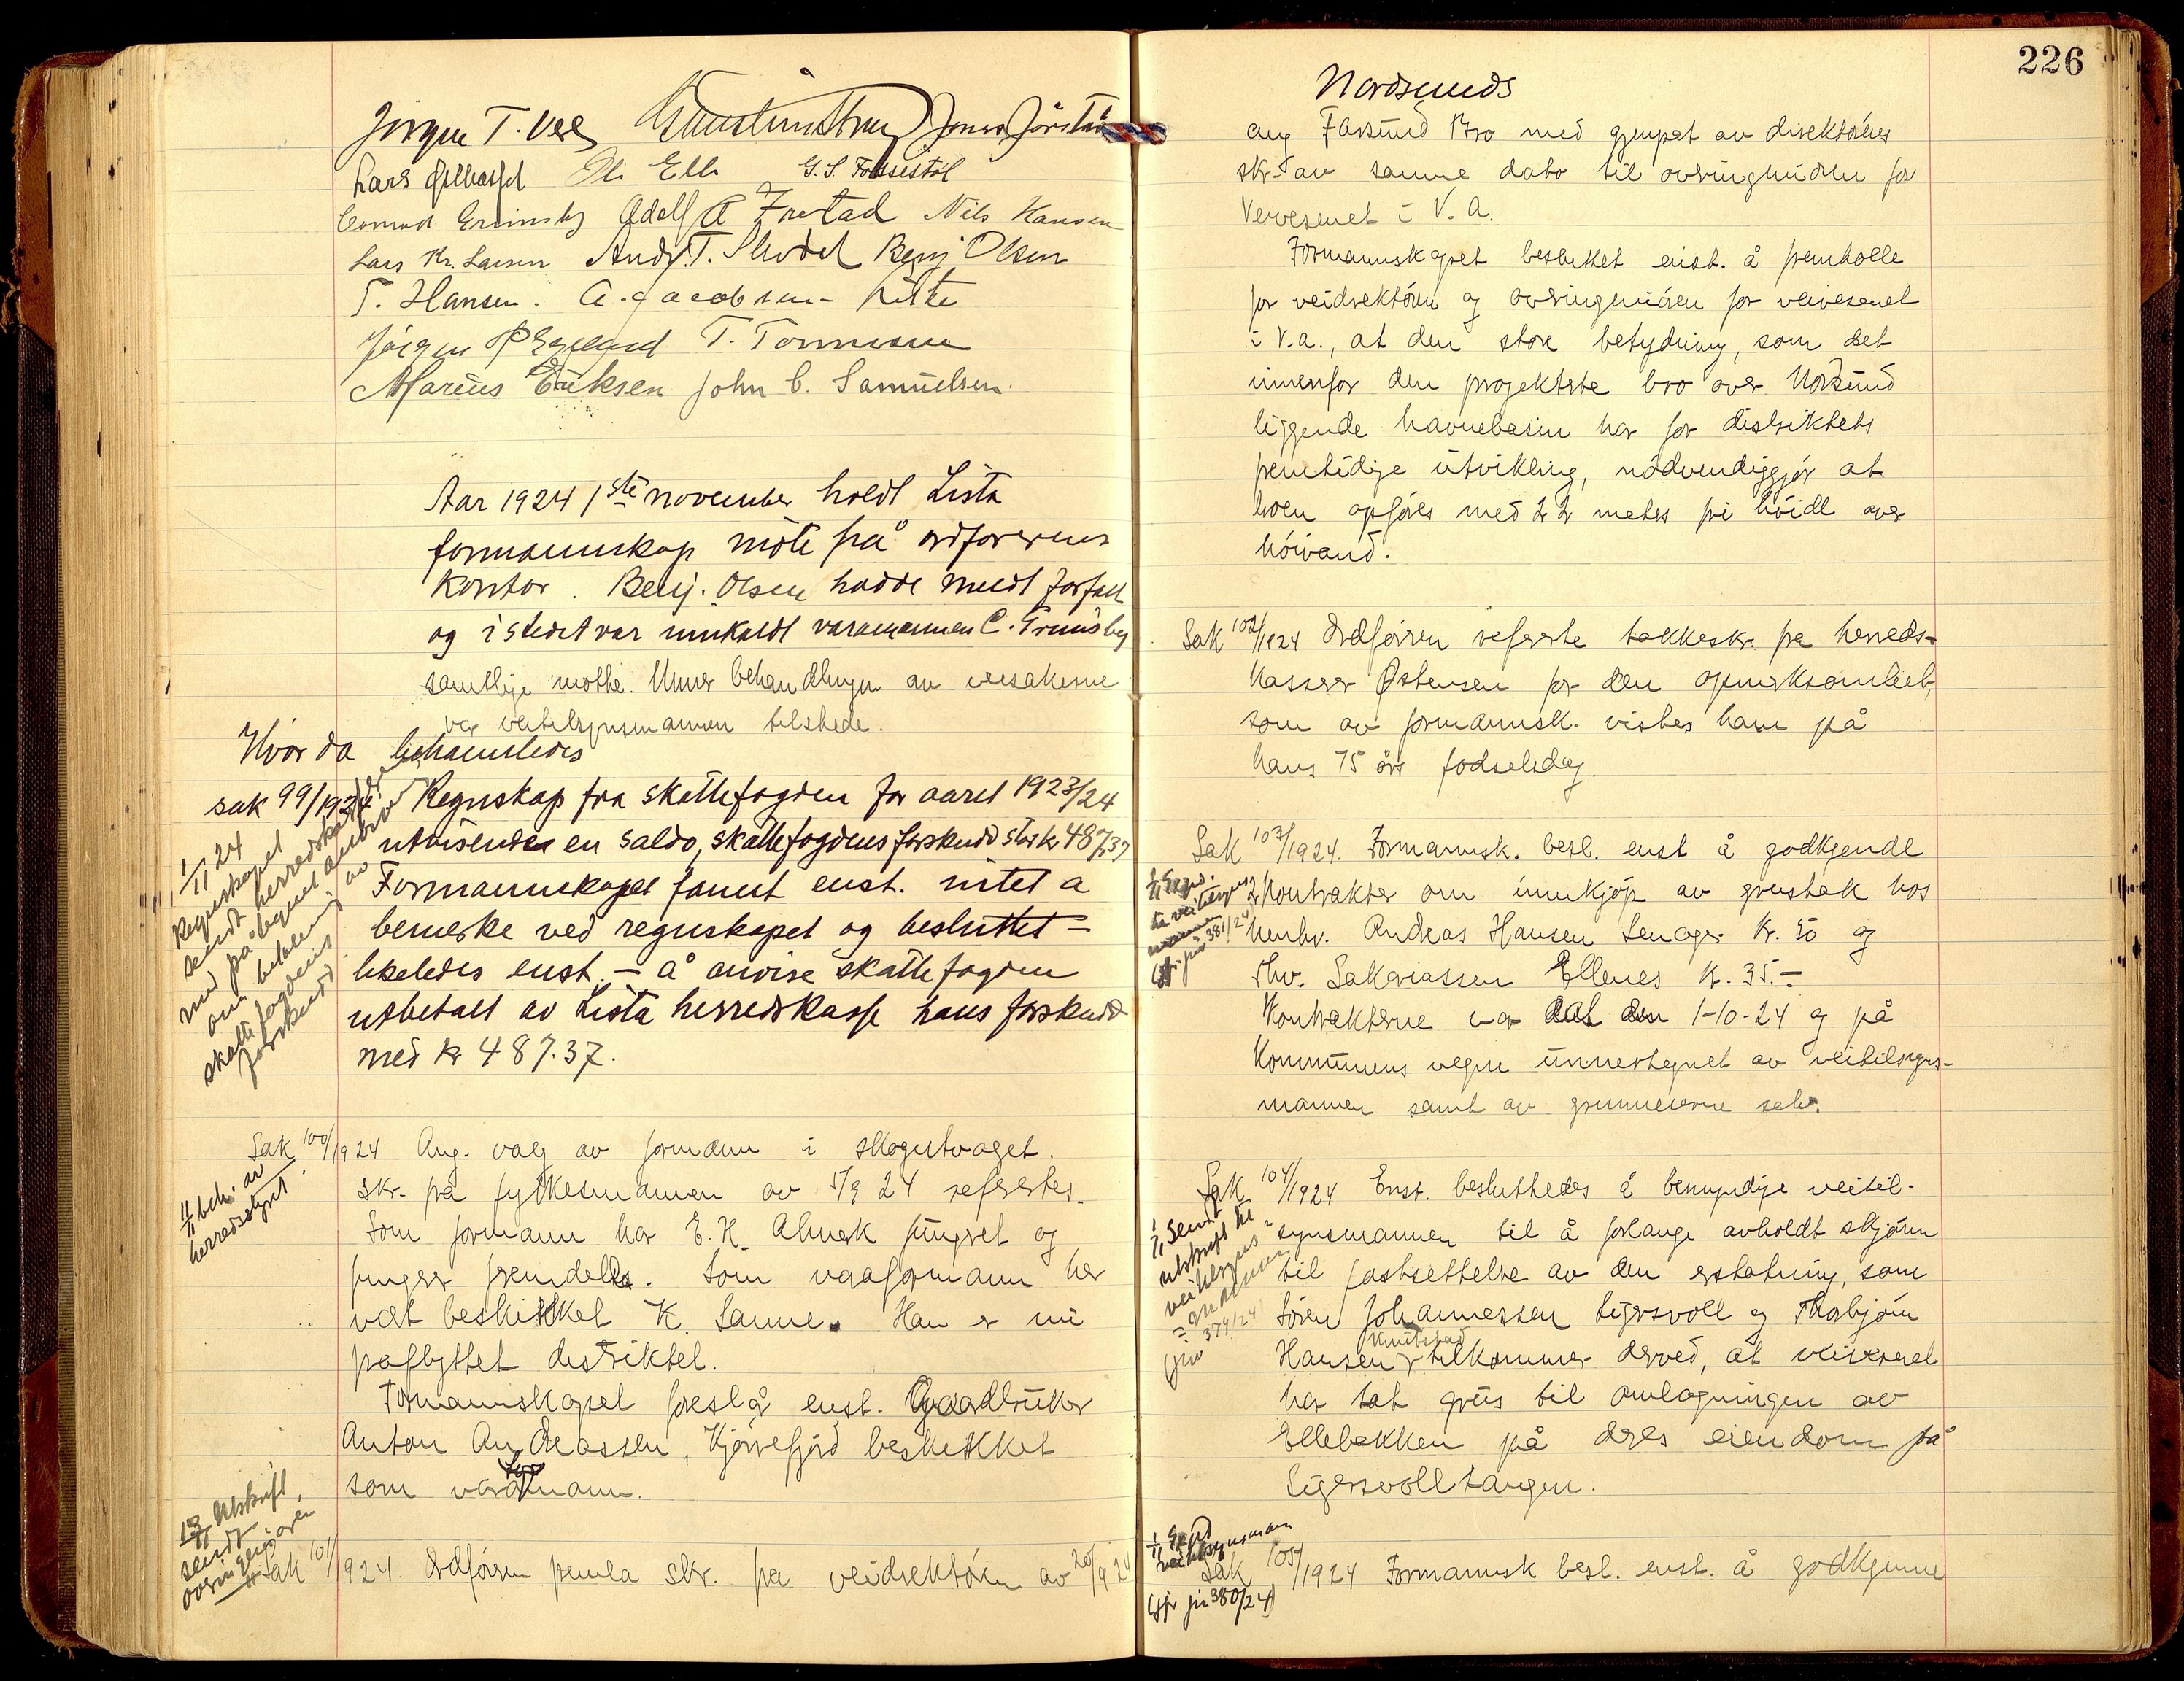 Jørgen T. Vere Jonas Jørstad
Lars Ole Elle G. S. Fossestøl
Conrad Grimsby Adolf A Frestad Nils Hansen
Lars Kr. Larsen Andr. T. Skodel Benj Olsen
T. Hansen. A. Jacobsen
Jørgen P T. Tønnesen
Marius Eriksen John C. Samuelsen.
Aar 1924 1ste november holdt Lista
formannskap møte på ordførerens
kontor. Benj. Olsen hadde meldt forfall
og i stedet var innkaldt varamannen C. Grimsby
samtlige møtte. Unner behandlingen av veisakerne
var veitilsynsmannen tilstede.
Hvor da behandledes
sak 99/1924 Regnskap fra skattefogden for aaret 1923/24
utvisende en saldo, skattefogdens forskudd stor kr 487,37
Formannskapet fannt enst. intet a
bemerke ved regnskapet og besluttet –
likeledes enst. – å anvise skattefogden
utbetalt av Lista herredskasse hans forskudd
med kr 487.37.
1/11 24
Regnskapet
sendt herredskassereren
med påtegnet anmodning
om utbetaling av
skattefogdens
forskudd
Sak 100/1924 Ang. valg av formann i skogutvaget.
Skr. fra fylkesmannen av 5/9 24 refertes.
Som formann har E. H. Almerk fungert og
fungerer fremdeles. Som varaformann her
vært beskikket K. Sanne. Han er nu
fraflyttet distriktet.
Formannskapet foreslår enst. Gaardbruker
Anton Andreassen, Kjørrefjord beskikket
som varaformann.
11/11 beh. av
herredsstyret.
Sak 101/1924. Ordføren fremla skr. fra veidrektøren av 20/9 24
13/11 Utskrift
sendt
overingeniøren
226
Nordsunds
ang Farsund Bro med gjenpart av direktørens
skr. av samme dato til overingeniøren for
Veivesenet i V. A.
Formannskapet besluttet enst. å fremholle
for veidirektøren og overingeniøren for veivesenet
i V.a., at den store betydning, som det
innenfor den projekterte bro over Norsund
liggende havnebasin har for distriktets
fremtidige utvikling, nødvendiggjør at
broen opføres med 22 meters fri høide over
høivand.
Sak 102/1924 Ordføreren refererte takkeskr. fra herreds-
kasserer Østensen for den opmerksomhet,
som av formannsk. vistes ham på
hans 75 års fødselsdag.
Sak 103/1924. Formannsk. besl. enst å godkjende
2 kontrakter om innkjøp av grustak hos
henhv. Andreas Hansen Lenager Kr. 50 og
Thv. Sakariassen Ellenes Kr. 35.–
Kontrakterne var dat den 1-10-24 og på
Kommunens vegne unnertegnet av veitilsyns-
mannen samt av grunneierne selv.
381/24
Sak 104/1924 Enst. besluttedes å bemyndige veitil-
synsmannen til å forlange avholdt skjønn
til fastsettelse av den erstatning, som
Søren Johannessen Sigersvoll og Thorbjørn
Hansen Knutstad tilkommer derved, at veivesenet
har tat grus til omlægningen av
Ellebakken på deres eiendom på
Sigersvolltangen.
1/11 Sendt
utskrift til
veitilsyns-
mannen
374/24
Sak 105/1924 Formannsk besl. enst. å godkjenne
1/11 Sendt
veitilsynsmann
(Jfr jn 380/24)